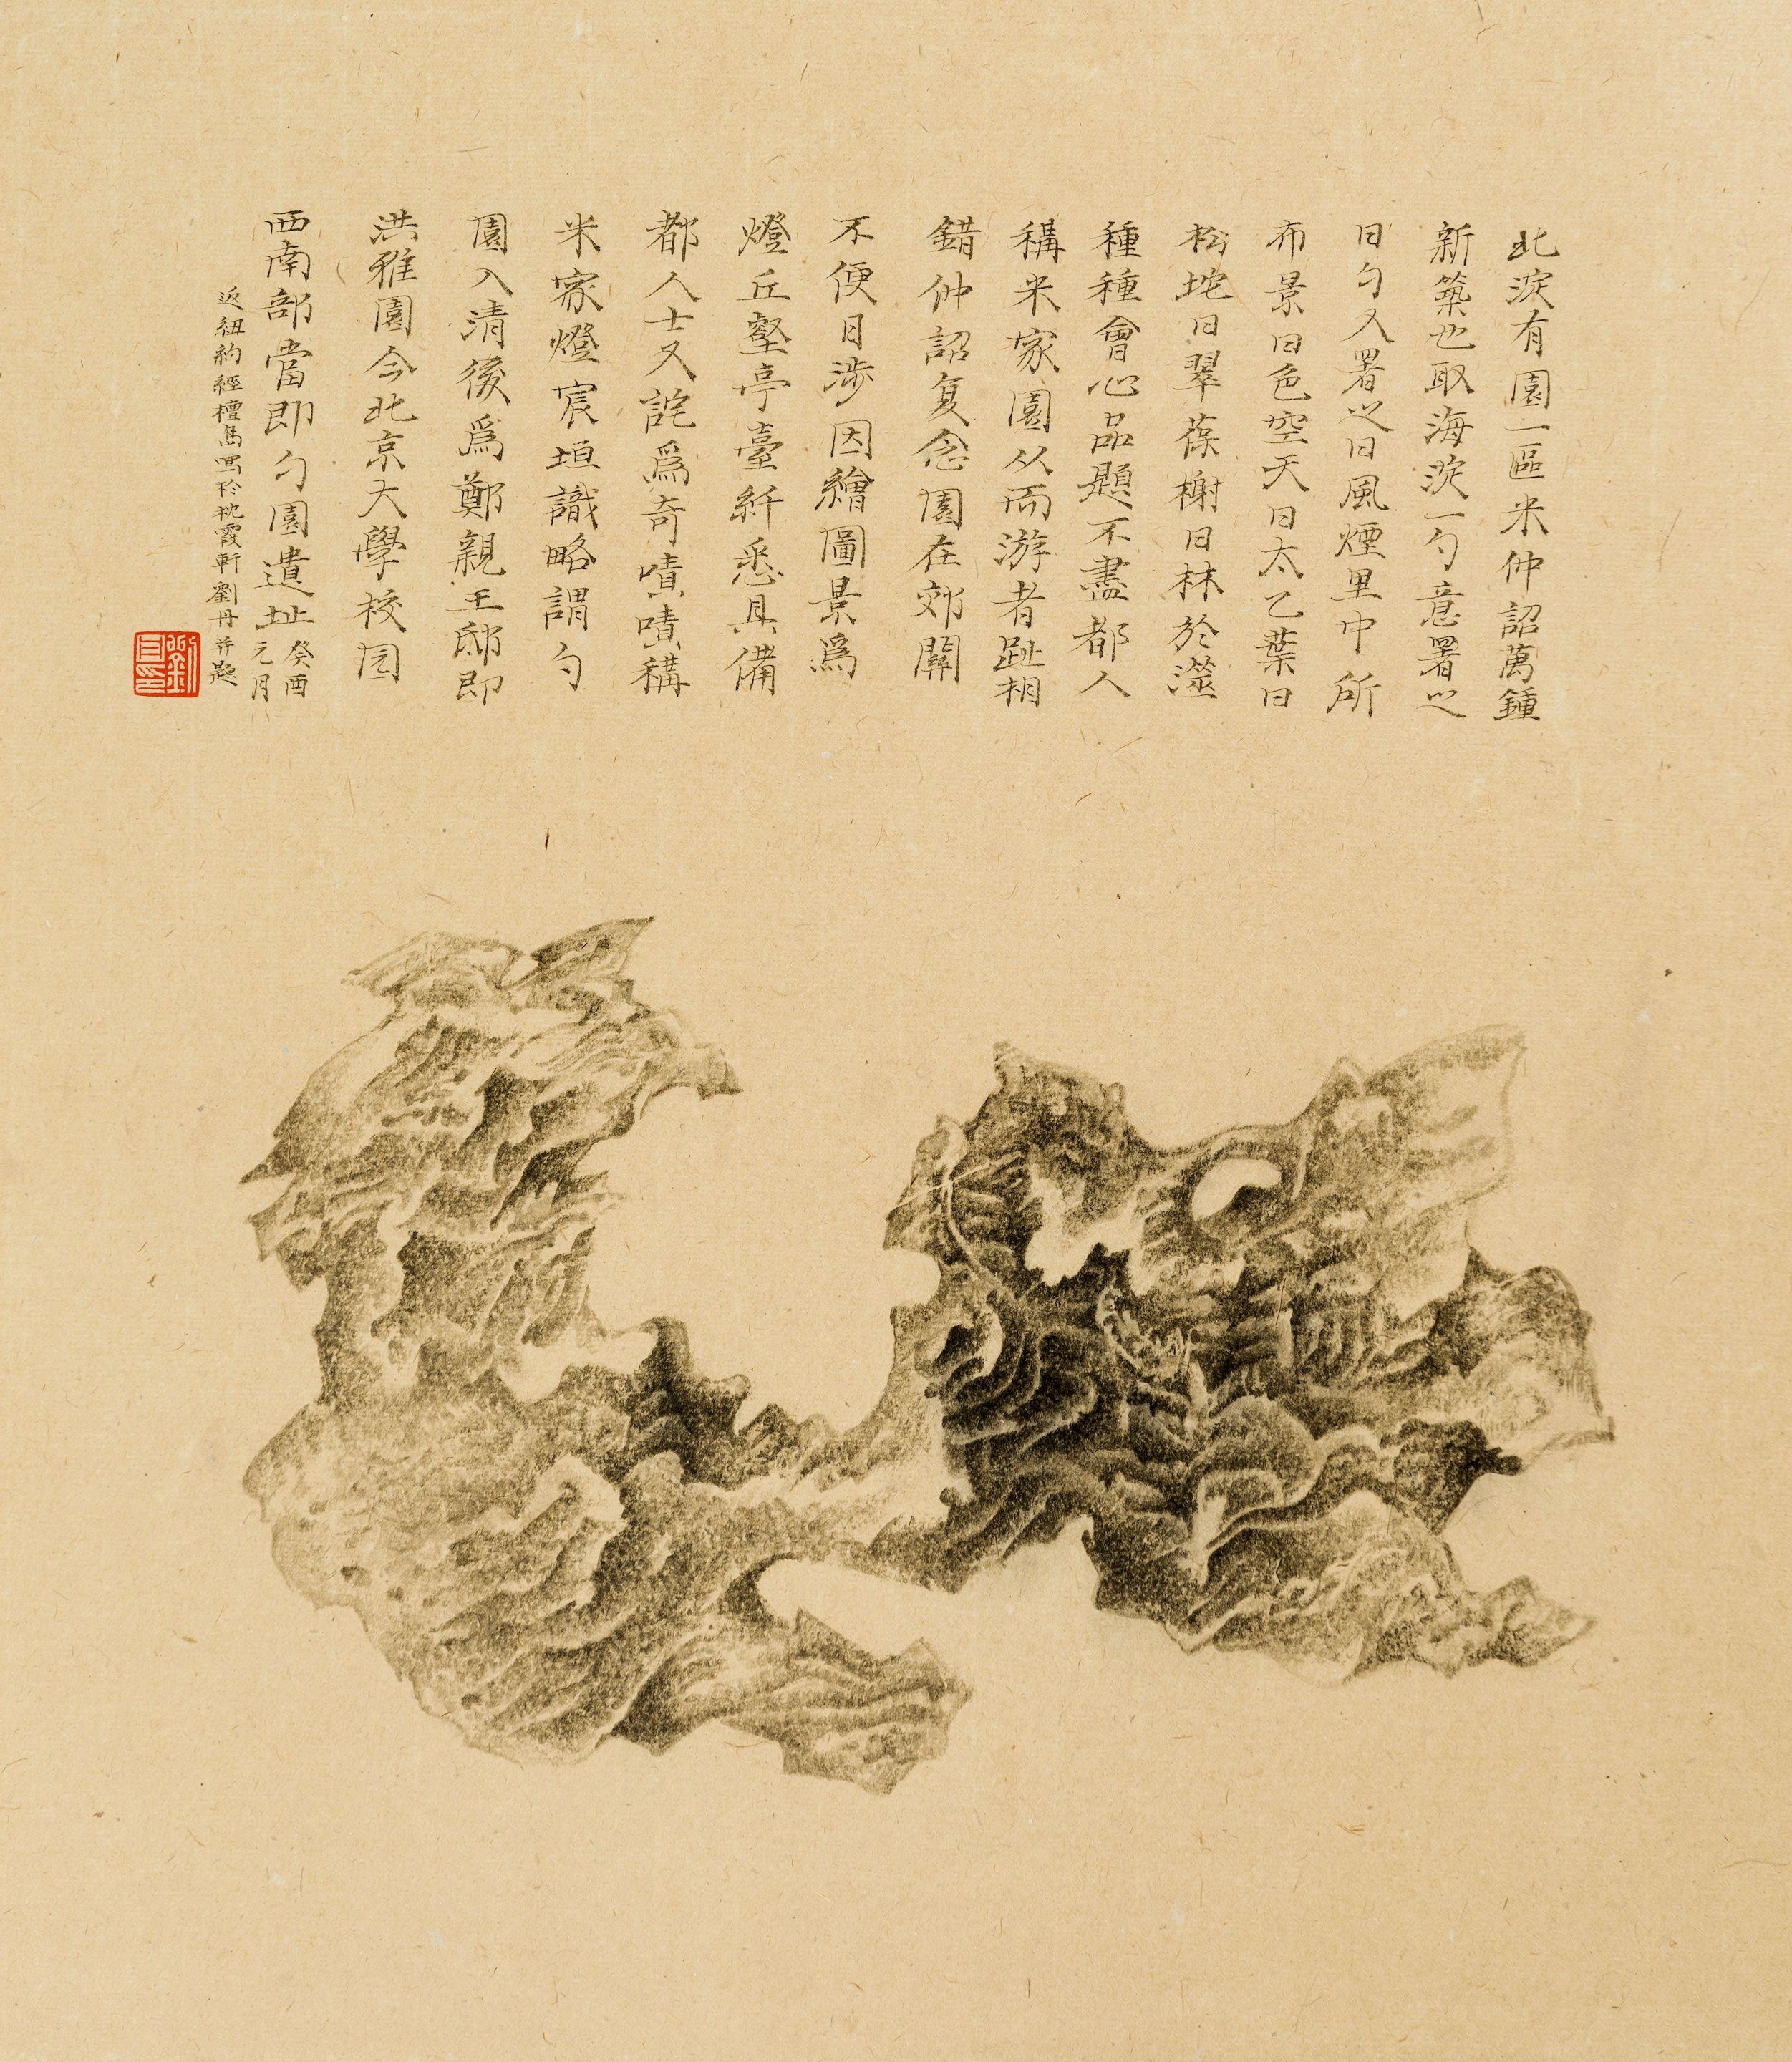 北淀有園一區米仲詔萬鍾
新築也取海淀一勺意署之
曰勺又署之曰風煙里中所
布景曰色空天曰太乙葉曰
松坨曰翠葆榭曰林於澨
種種會心品題不盡都人
稱米家園从而游者趾相
錯仲詔复念園在郊關
不便日涉因繪圖景爲
燈丘壑亭臺纖悉具備
都人士又詫爲奇嘖嘖稱
米家燈宸垣識略謂勺
園入清後爲鄭親王邸即
洪雅園今北京大學校园
西南部當即勺園遺址
癸酉
元月
返紐約經檀島寫於枕霞軒劉丹并題